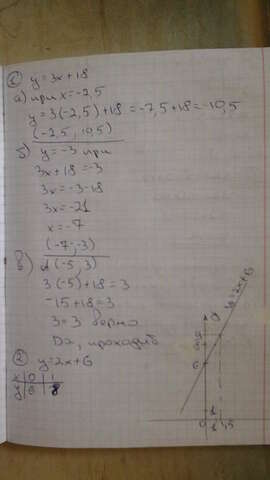 ① y=3x+18
а) при x=-2,5
y=3(-2,5)+18=-7,5+18=-10,5
(-2,5, 10,5)
б) y=-3 при
3x+18=-3
3x=-3-18
3x=-21
x=-7
(-7,-3)
в) A(-5, 3)
3(-5)+18=3
-15+18=3
3=3 верно
Да, проходит
② y=2x+6
x 0 1
y 6 8
y=2x+6
y
6
1
0 1 1,5